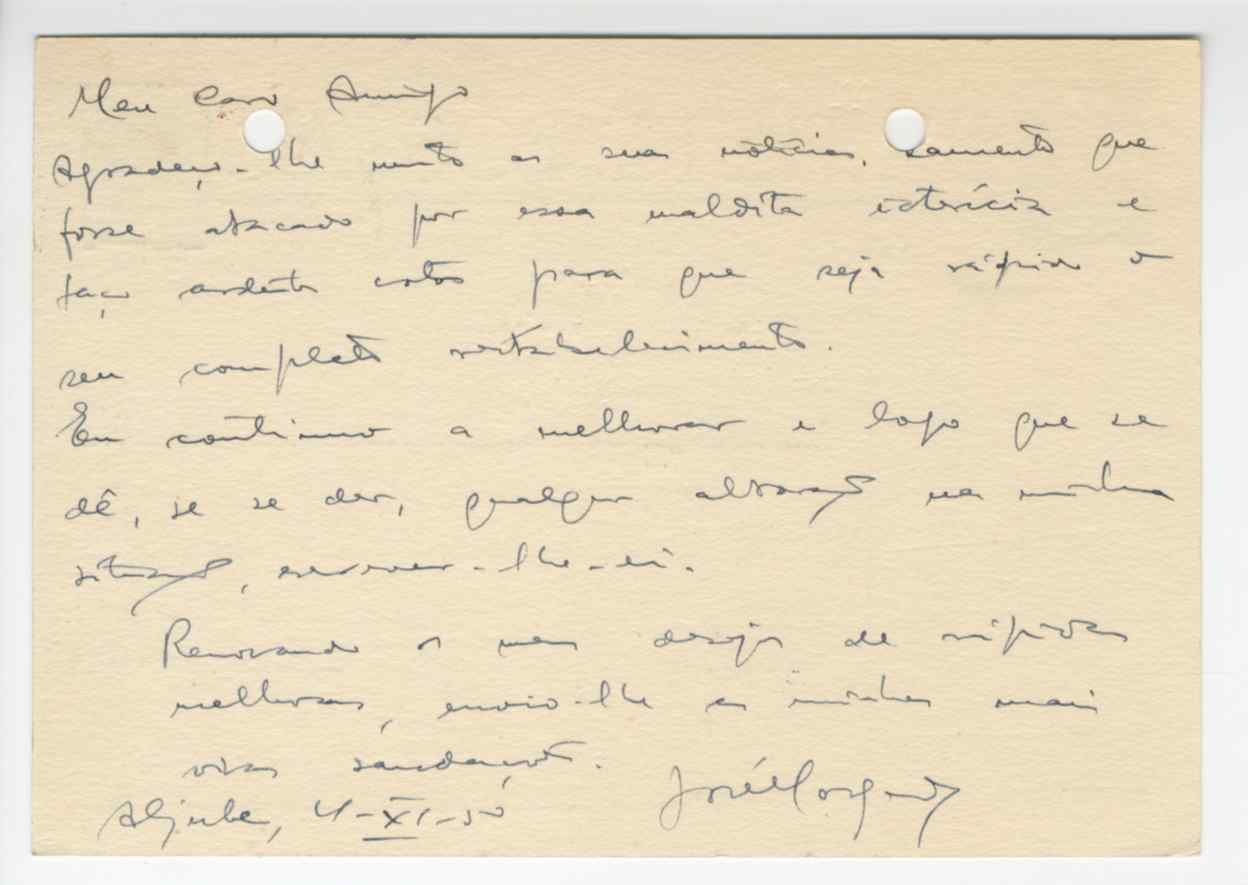 Meu Caro Amigo
Agradeço-lhe muito as suas notícias. Lamento que
fosse atacado por essa maldita icterícia e
faço ardentes votos para que seja rápido o
seu completo restabelecimento.
Eu continuo a melhorar e logo que se
dê, se se der, qualquer alteração na minha
situação, escrever-lhe-ei.
Renovando os meus desejos de rápidas
melhoras, envio-lhe as minhas mais
vivas saudações.
Aljube, 4-XI-50 José